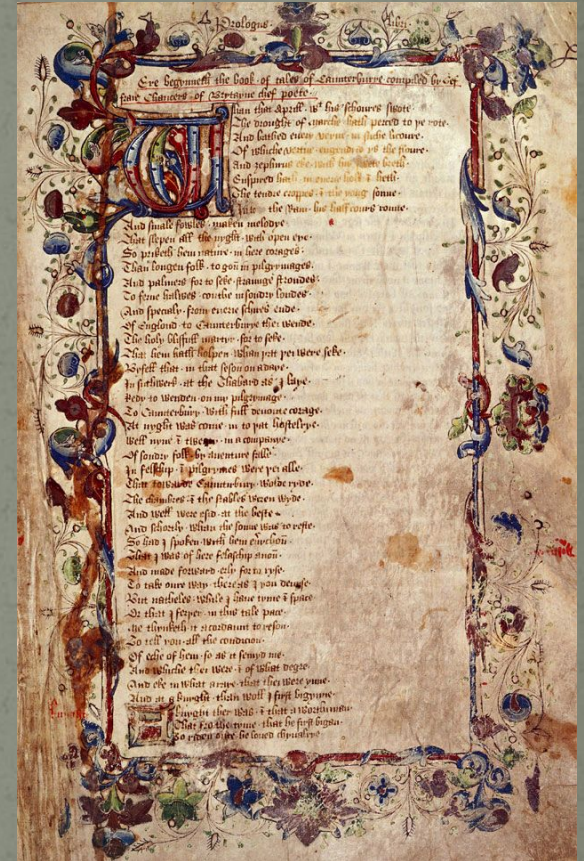 Prologus libri
Eye begynneth the book of tales of Caunterburye compiled by Gef
fraie Chaucers of Brytayne chef poete
Whan that Aprill wt his schoures swote
The drought of marche hath perced to ye rote
And bathed euery veyne in suche licoure
Of whiche vertue engendred is the floure
And zephirus eke with his swete breth
Enspired hath in euerie holt & heth
The tendre croppes & the yong sonne
In to the Ram his half cours ronne
And smale fowles maken melodye
That slepen all the nyght with open eye
So priketh hem nature in here corages
Than longen folk to gon in pilgrymages
And palmers for to seke straunge strondes
To ferne halwes couthe in sondry londes
And specialy from euerie schires ende
Of Englond to Caunterburye thei wende
The holy blisfull martyr for to seke
That hem hath holpen whan yat yei were seke
Byfell that in that seson on a daye
In suthwerk at the Thabard as I laye
Redy to wenden on my pilgrymage
To Caunterbury with full deuoute corage
At nyght was come in to yat hostelrye
Well nyne & in a companye
Of sondry folk by auenture falle
In felschip & pilgrymes were yei alle
That towarde Caunterbury wolde ryde
The chambres & the stables weren wyde
And well were esid at the beste
And schortly whan the sonne was to reste
So had I spoken with hem euerychon
That I was of here felaschip anon
And made forward erly for to ryse
To take oure way there as I you deuyse
But natheles while I haue tyme & space
Or that I feryer in this tale pace
Me thynketh it acordaunt to reson
To tell you all the condicion
Of eche of hem so as it semyd me
And whiche thei were & of what degre
And eke in what araye that thei were ynne
And at a knyght than woll I first bigynne
A knyght ther was & that a worthi man
That fro the tyme that he first bigan
To riden oute he loved chyualrye